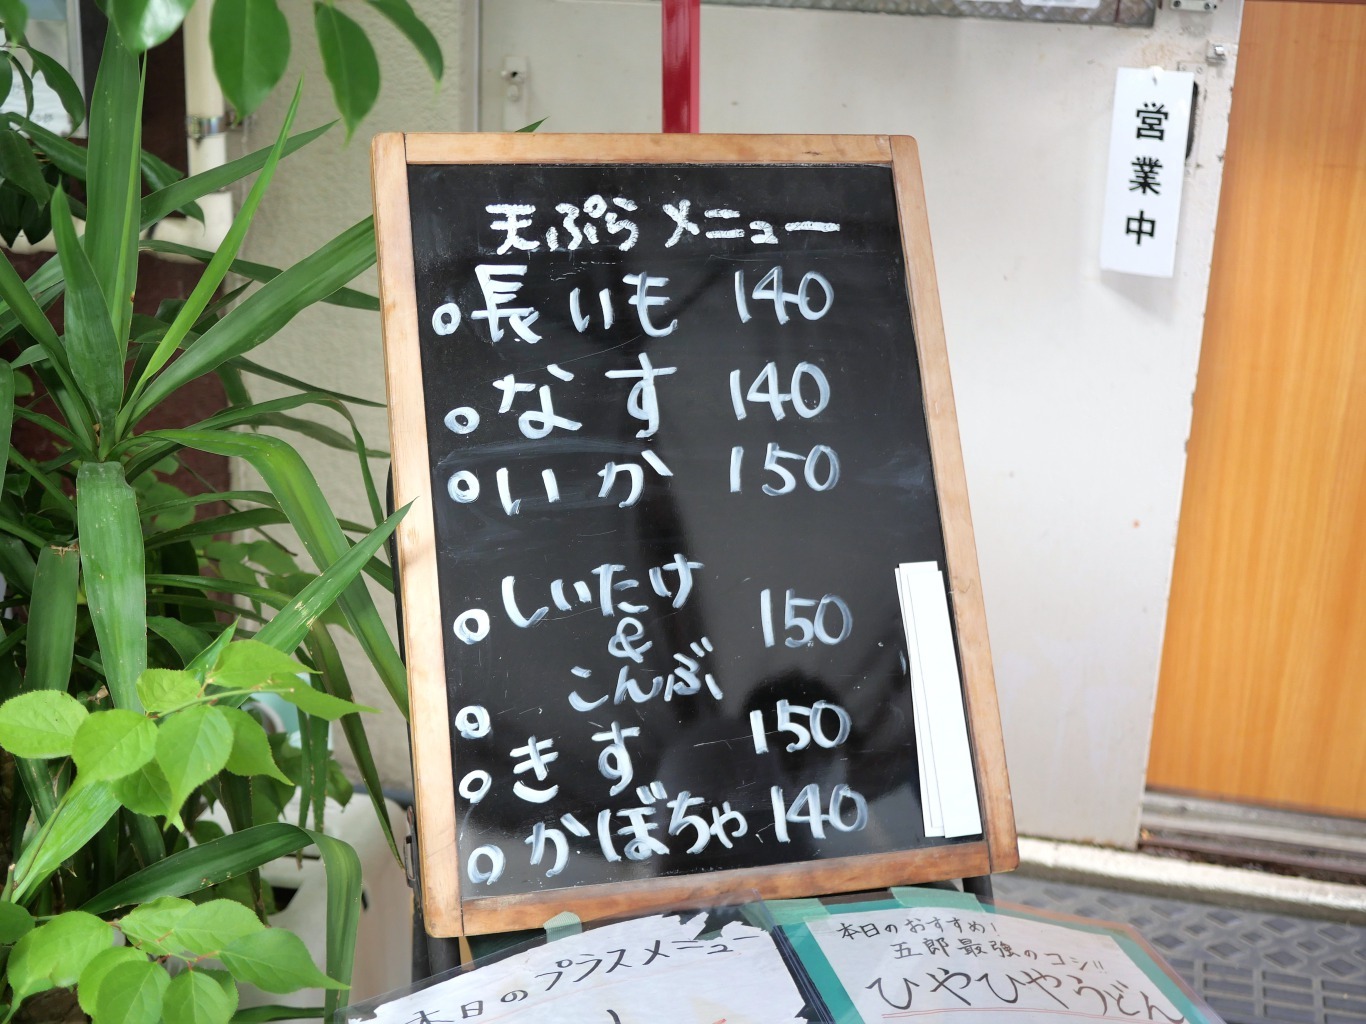 天ぷらメニュー
長いも 140
なす 140
いか 150
しいたけ
&
こんぶ
150
きす 150
かぼちゃ 140
営業中
本日のプラスメニュー
本日のおすすめ!
五郎最強のコシ!!
ひやひやうどん